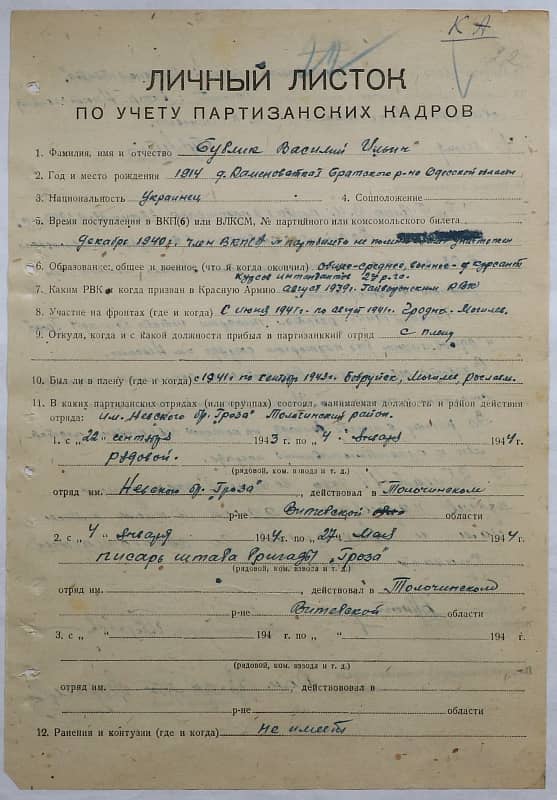 КА
ЛИЧНЫЙ ЛИСТОК
ПО УЧЕТУ ПАРТИЗАНСКИХ КАДРОВ
1. Фамилия, имя и отчество Бувлик Василий Ильич
2. Год и место рождения 1914 д. Братского р-на Одесской области
3. Национальность Украинец 4. Соцположение
5. Время поступления в ВКП(б) или ВЛКСМ, № партийного или комсомольского билета
декабрь 1940 г. член партбилет не
6. Образование: общее и военное (что и когда окончил) общее-среднее, военное-
курсов интендантов 27 р-го.
7. Каким РВК и когда призван в Красную Армию август 1939 г. Гайворонским РВК
8. Участие на фронтах (где и когда) С июня 1941 г. по август 1941 г. Гродно. Могилев.
9. Откуда, когда и с какой должности прибыл и партизанкий отряд с плену
10. Был ли в плену (где и когда) с 1941 г. по сентябрь 1943 г. Бобруйск, Могилев, Рославль.
11. В каких партизанских отрядах (или группах) состоял, занимаемая должность и район действия
отряда: им. Невского бр. "Гроза" Толочинский район.
1. с „22" сентября 1943 г. по „4" января 1944 г.
рядовой.
(рядовой, ком. взвода и т. д.)
отряд им. Невского бр. "Гроза", действовал в Толочинском
р-не Витебской области
2. с „4" января 1944 г. по „27" мая 1944
писарь штаба бригады "Гроза"
(рядовой, ком. взвода и т. д.)
отряд им. , действовал в Толочинском
р-не Витебской области
3. с „ " 194 г. по „ " 194 г.
(рядовой, ком. взвода и т. д.)
отряд им. , действововал в
р-не области
12. Ранения и контузии (где и когда) не имеет